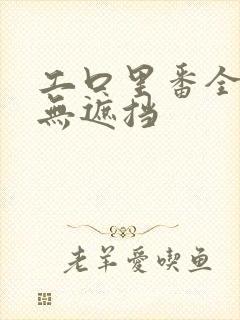 工口里番全
無遮挡
老羊愛喫鱼